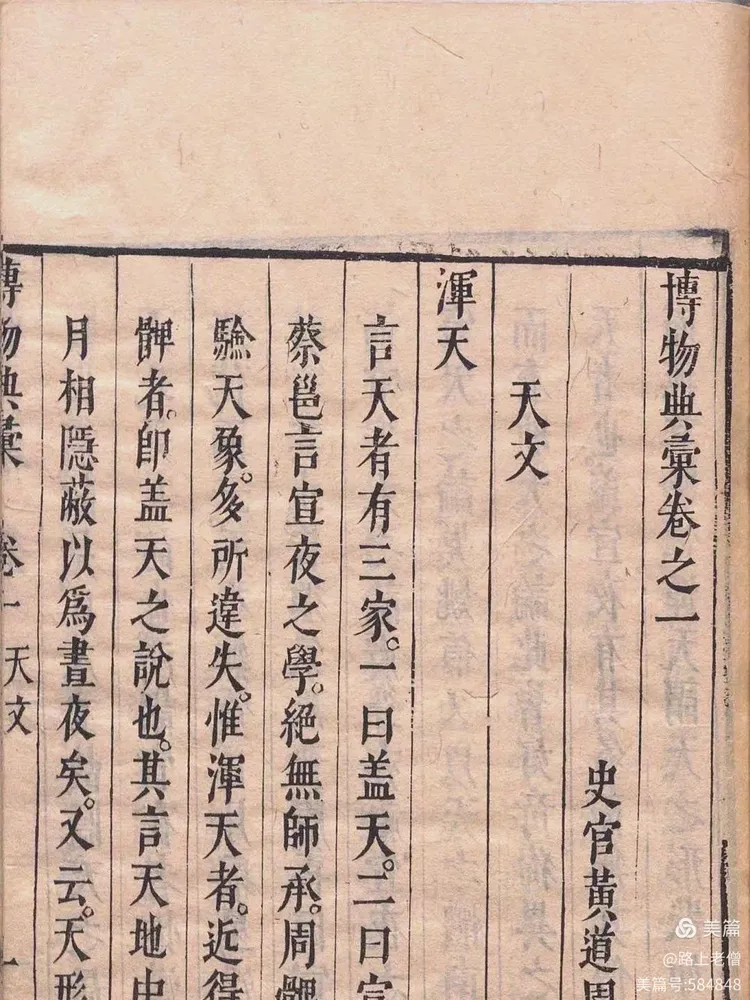 博物典彙卷之一
史官黃道周
天文
渾天
言天者有三家。一曰盖天。二曰宣
蔡邕言宣夜之學。絕無師承。周髀
驗天象。多所違失。惟渾天者。近得
髀者。即盖天之說也。其言天地中
月相隱蔽以爲晝夜矣。又云。天形
博物典彙 卷一 天文
美篇
@路上老僧
美篇号:584848